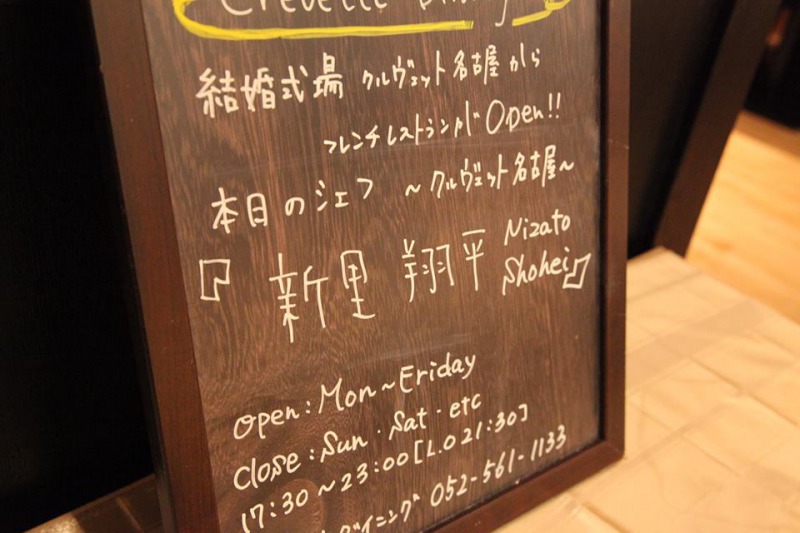 結婚式場 クルヴェット名古屋から
フレンチレストランが Open!!
本日のシェフ ~クルヴェット名古屋~
『新里 翔平 Nizato Shohei』
open:Mon~Friday
close:Sun・Sat・etc
17:30~23:00[L.O 21:30]
ダイニング 052-561-1133